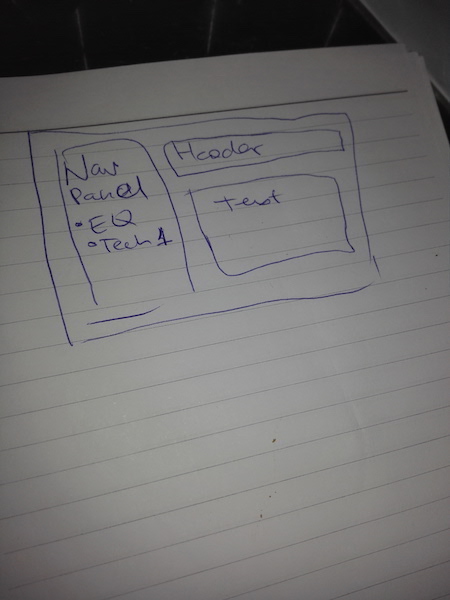 Nav
Panel
• EQ
• Tech 1
Header
text